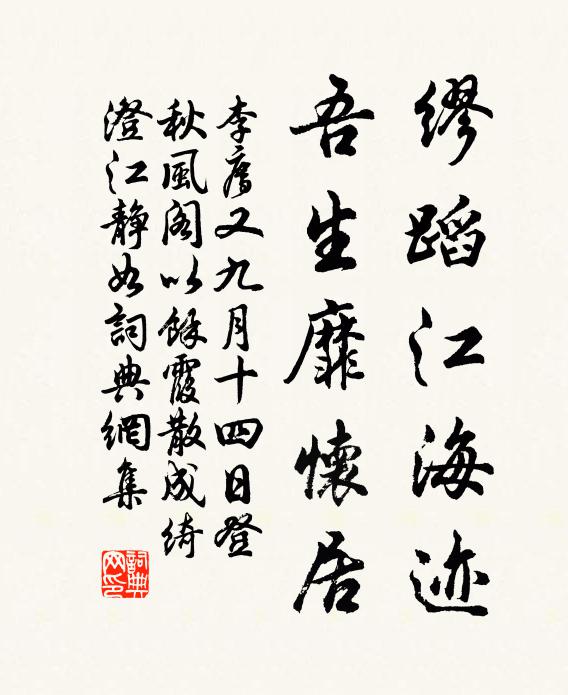 缪蹈江海迹
吾生靡怀居
李廌又九月十四日登
秋風阁以餘霞散成绮
澄江静如詞典網集
詞典网印